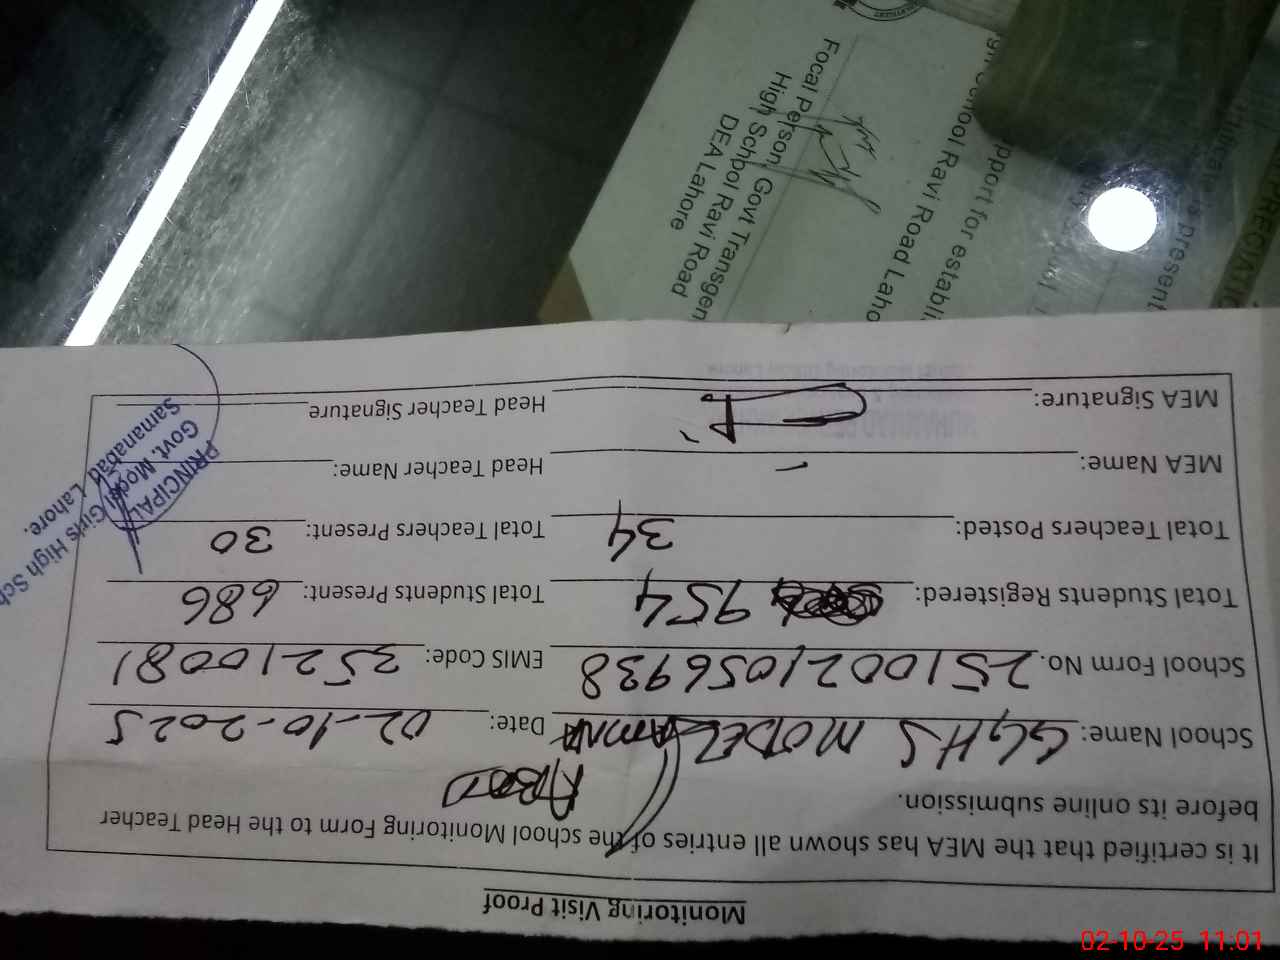 Monitoring Visit Proof
It is certified that the MEA has shown all entries of the school Monitoring Form to the Head Teacher
before its online submission.
School Name: GGHS MODEL Date: 02-10-2025
School Form No. 2510021056938 EMIS Code: 35210081
Total Students Registered: 954 Total Students Present: 686
Total Teachers Posted: 34 Total Teachers Present: 30
MEA Name: Head Teacher Name:
MEA Signature: Head Teacher Signature
PRINCIPAL
Govt. Model Girls High Sch
Samanabad, Lahore.
Focal Person, Govt Transgen
High School Ravi Road
DEA Lahore
pport for establi
chool Ravi Road Laho
present
02-10-25 11:01